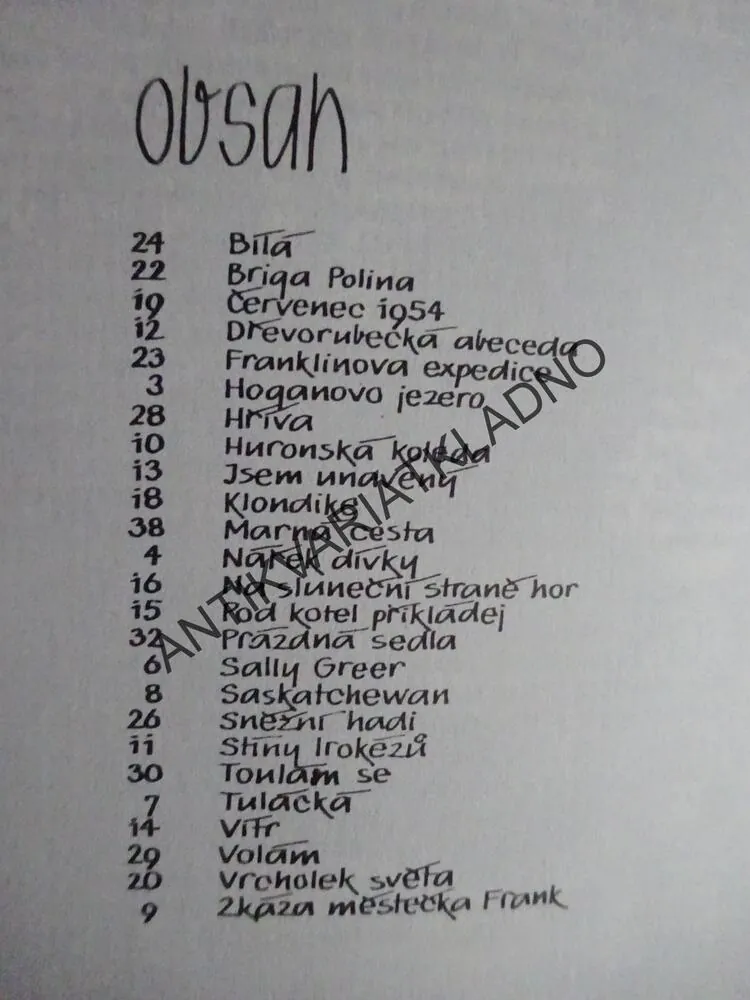 obsah
24 Bílá
22 Briga Polina
19 Červenec 1954
12 Dřevorubecká abeceda
23 Franklinova expedice
3 Hoganovo jezero
28 Hříva
10 Huronská koleda
13 Jsem unavený
18 Klondike
38 Marná cesta
4 Nářek dívky
16 Na sluneční straně hor
15 Pod kotel přikládej
32 Prázdná sedla
6 Sally Greer
8 Saskatchewan
26 Sněžní hadi
11 Stíny Irokézů
30 Toulám se
7 Tulácká
14 Vítr
29 Volám
20 Vrcholek světa
9 Zkáza městečka Frank
ANTIKVARIAT KLADNO